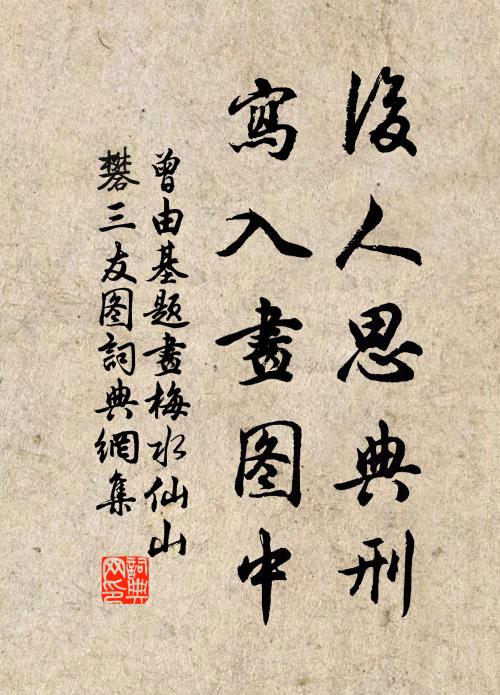 後人思典刑
寫入畫圖中
曾由基題畫梅水仙山
礬三友图詞典網集
詞典網印